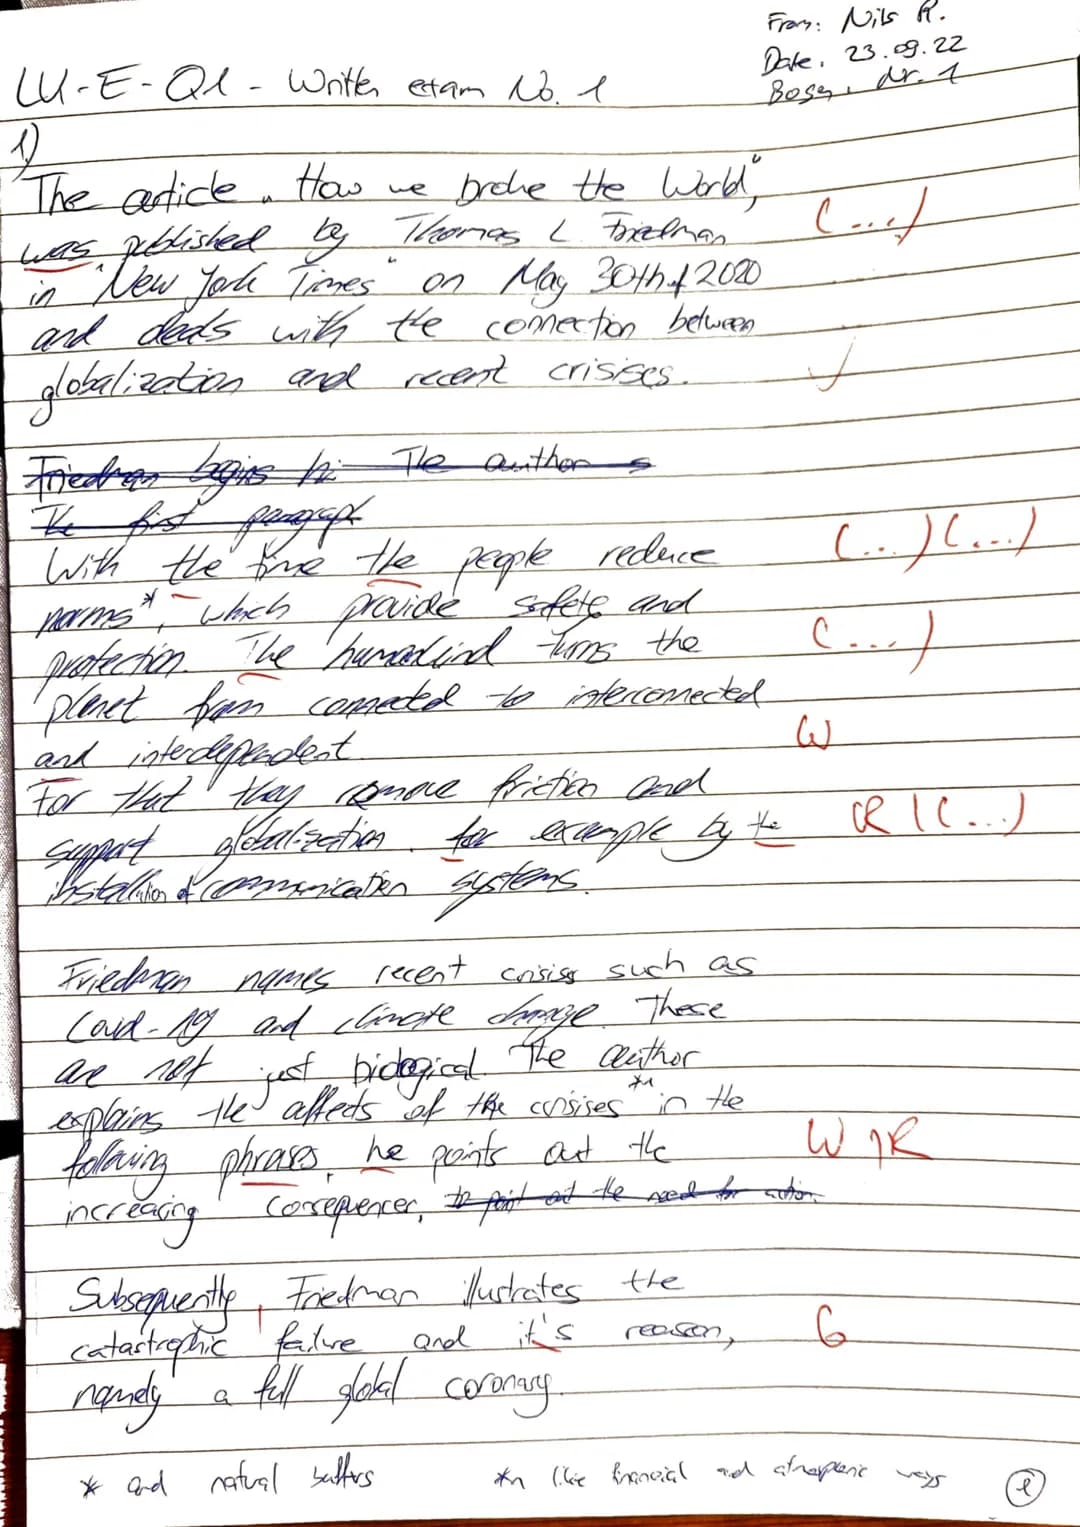 From: Nils R.
Date: 23.09.22
Bogen, Nr. 1
LU-E-Q1 - Written exam No. 1
1)
The article „How we broke the World“,
was published by Thomas L. Friedman (...)
in „New York Times“ on May 30th of 2020
and deals with the connection between
globalization and recent crisises. √
Friedman begins hi The author s
The first paragraph
With the time the people reduce (...) (...)
norms*, which provide safety and
protection. The humankind turns the (...)
planet from connected to interconnected
and interdependent. W
For that they remove friction and
support globalisation, for example by the R | (...)
installation of communication systems.
Friedman names recent crisises such as
Covid-19 and climate change. These
are not just biological. The author
explains the affects of the crisises*² in the
following phrases, he points out the W, R
increasing consequences, to point out the need for action.
Subsequently, Friedman illustrates the
catastrophic failure and it's reason, G
namely a full global coronary.
* and natural buffers
*² like financial and atmospheric ways
1